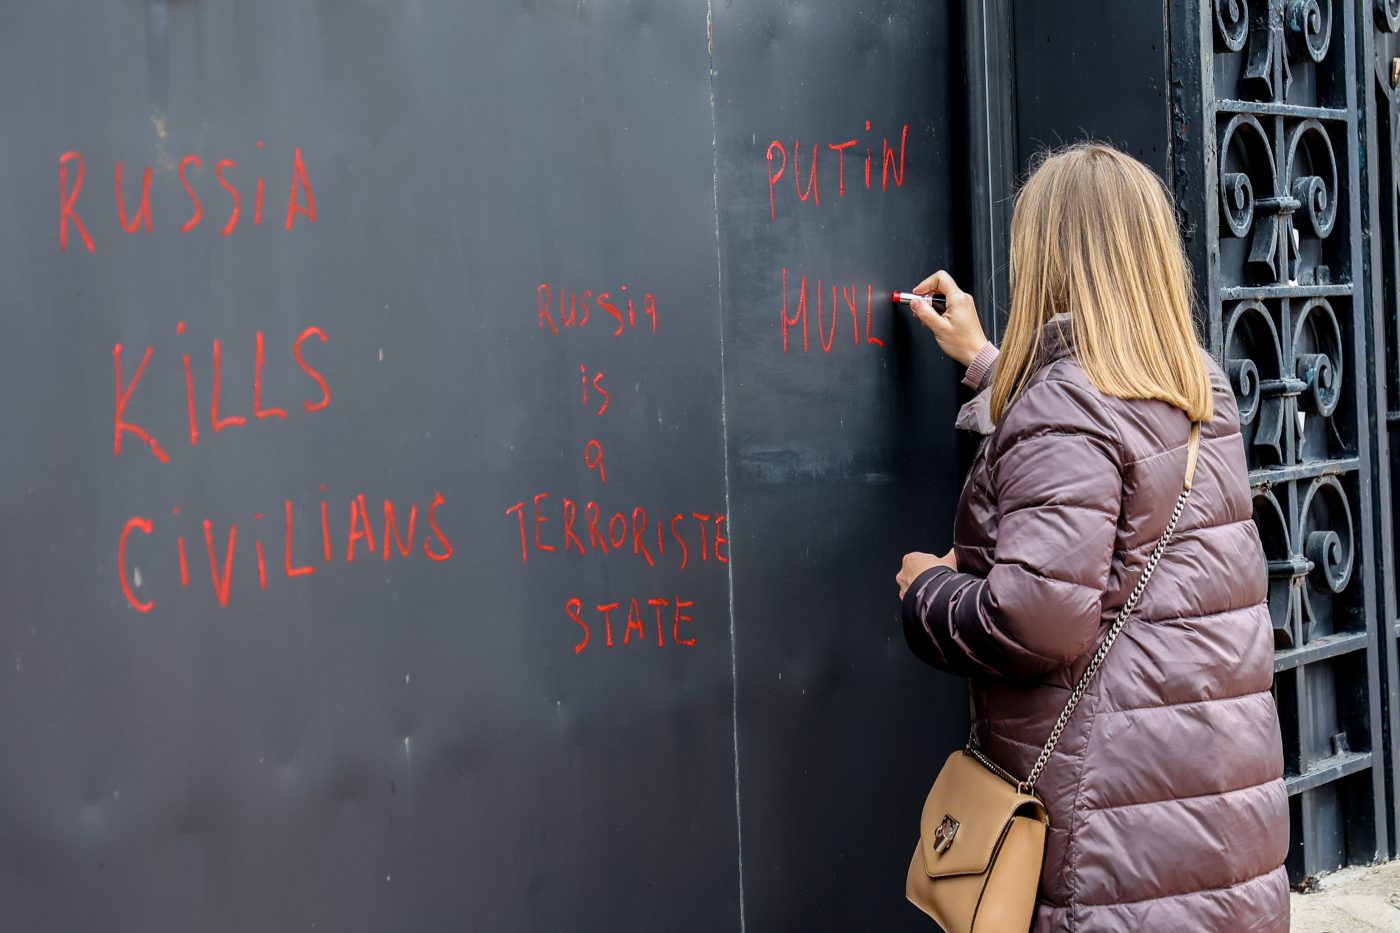 RUSSiA
KiLLS
CiViLIANS
RUSSia
is
a
TERRORiSTE
STATE
PUTiN
HUYL